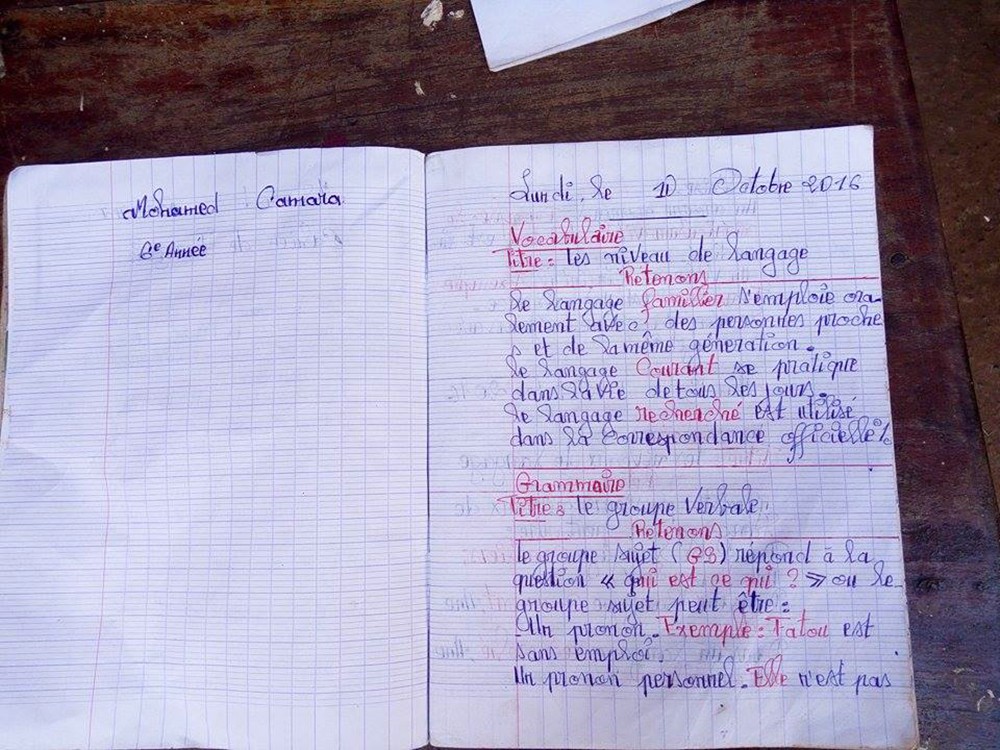 Mohamed Camara
6e Année
Lundi, le 10 Octobre 2016
Vocabulaire
Titre : les niveau de langage
Retenons
Le langage familier s'emploie ora-
lement avec des personnes proche
s et de la même géneration.
Le langage Courant se pratique
dans la vie de tous les jours.
Le langage recherché est utilisé
dans la correspondance officielle
Grammaire
Titre : le groupe Verbale.
Retenons
Le groupe sujet (GS) répond à la
question « qui est ce qui ? » ou le
groupe sujet peut être :
Un pronon. Exemple : Fatou est
sans emploi.
Un pronon personnel. Elle n'est pas